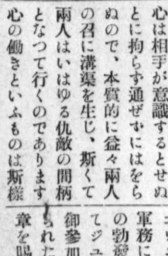 心は相手が意識するとせぬ
とに拘らず通ぜずにはをら
ぬので、本質的に益々兩人
の召に溝渠を生じ、斯くて
兩人はいはゆる仇敵の間柄
となつて行くのであります
心の働きといふものは斯樣
軍務に
の勃
てジユ
御參加
られた
章を賜